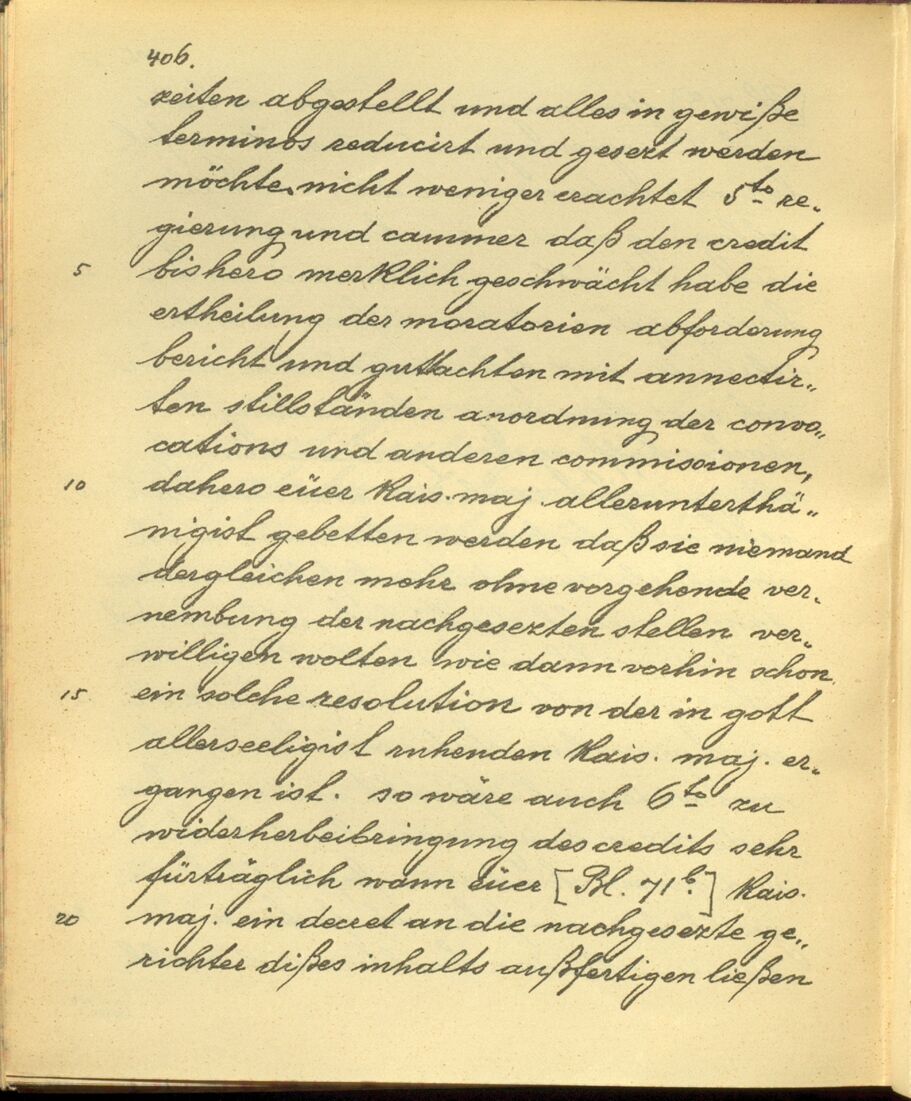 406.
zeiten abgestellt und alles in gewiße
terminos reducirt und gesezt werden
möchte, nicht weniger erachtet 5to re„
gierung und cammer daß den credit
5 bishero merklich geschwächt habe die
ertheilung der moratorien abforderung
bericht und guttachten mit annectir„
ten stillständen anordnung der convo„
cations und anderen commissionen,
10 dahero eüer kais. maj. allerunterthä„
nigist gebetten werden daß sie niemand
dergleichen mehr ohne vorgehende ver„
nembung der nachgesezten stellen ver„
willigen wolten wie dann vorhin schon
15 ein solche resolution von der in gott
allerseeligist ruhenden kais. maj. er„
gangen ist. so wäre auch 6to zu
widerherbeibringung des credits sehr
fürträglich wann eüer [Bl. 71b.] kais.
20 maj. ein decret an die nachgesezte ge„
richter dißes inhalts außfertigen ließen